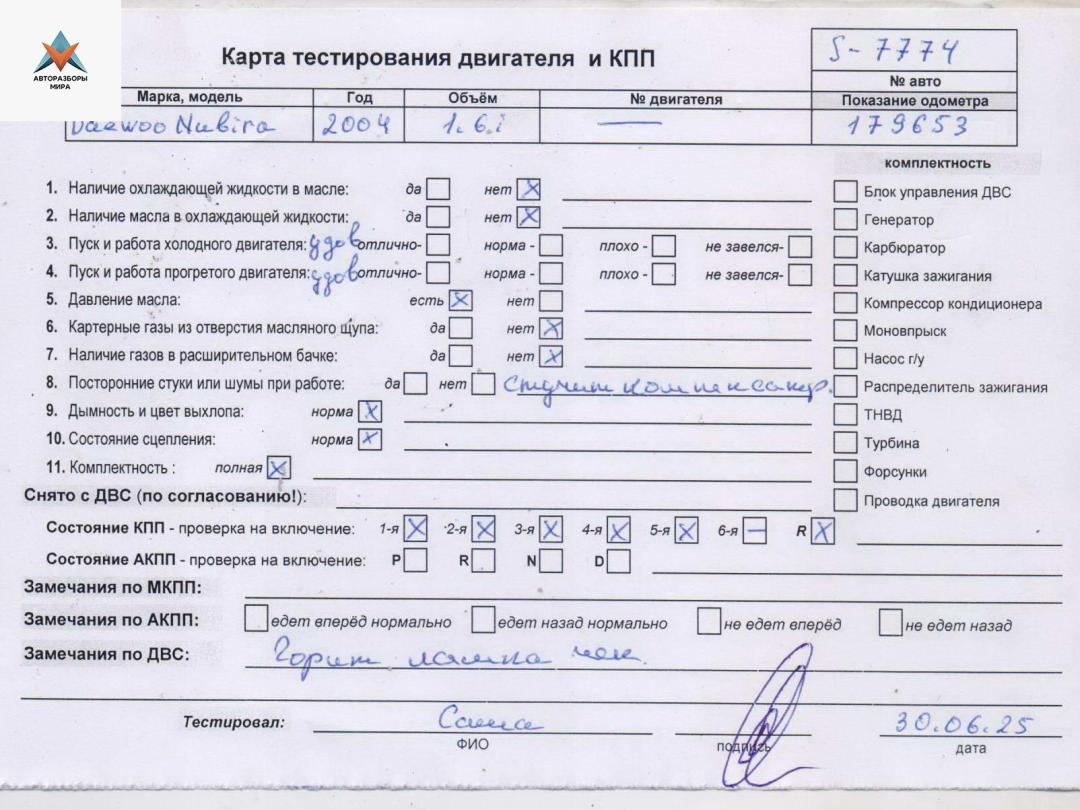 АВТОРАЗБОРЫ
МИРА
Карта тестирования двигателя и КПП
S-7774
№ авто
Марка, модель Год Объём № двигателя Показание одометра
Daewoo Nubira 2004 1.6i — 179653
комплектность
1. Наличие охлаждающей жидкости в масле: да нет X
Блок управления ДВС
2. Наличие масла в охлаждающей жидкости: да нет X
Генератор
3. Пуск и работа холодного двигателя: удов отлично- норма - плохо - не завелся-
Карбюратор
4. Пуск и работа прогретого двигателя: удов отлично- норма - плохо - не завелся-
Катушка зажигания
5. Давление масла: есть X нет
Компрессор кондиционера
6. Картерные газы из отверстия масляного щупа: да нет X
Моновпрыск
7. Наличие газов в расширительном бачке: да нет X
Насос г/у
8. Посторонние стуки или шумы при работе: да нет Стучит компенсатор.
Распределитель зажигания
9. Дымность и цвет выхлопа: норма X
ТНВД
10. Состояние сцепления: норма X
Турбина
11. Комплектность : полная X
Форсунки
Снято с ДВС (по согласованию!):
Проводка двигателя
Состояние КПП - проверка на включение: 1-я X 2-я X 3-я X 4-я X 5-я X 6-я — R X
Состояние АКПП - проверка на включение: P R N D
Замечания по МКПП:
Замечания по АКПП: едет вперёд нормально едет назад нормально не едет вперёд не едет назад
Замечания по ДВС: Горит лампа чек.
Тестировал: Саша 30.06.25
ФИО подпись дата